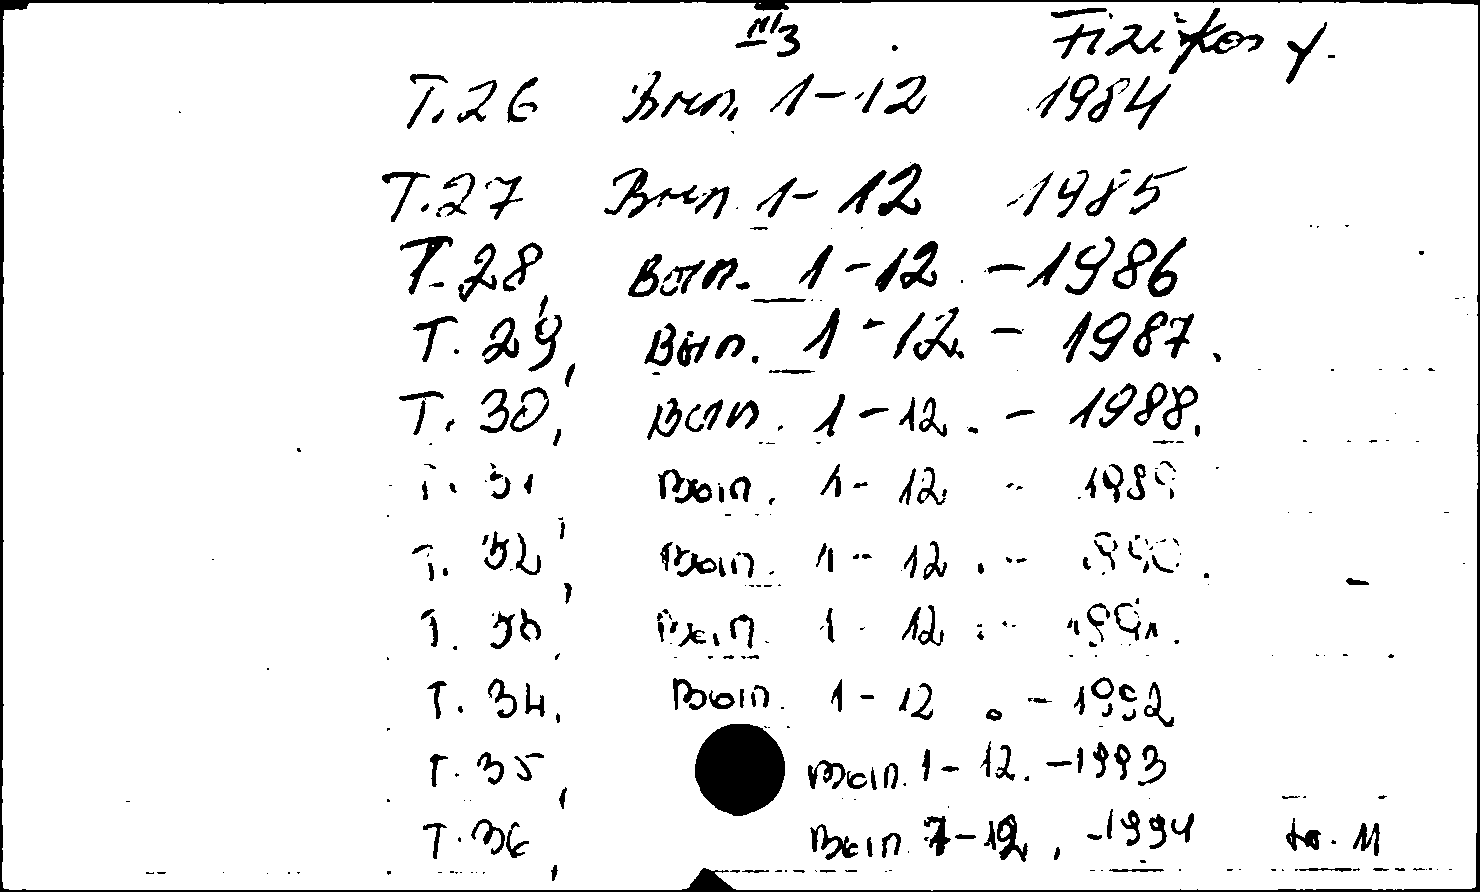 III/3 Fizikos f.
T.26 Вып. 1-12 1984
T.27 Вып. 1-12 1985
T.28, Вып. 1-12 -1986
T. 29, Вып. 1-12. - 1987.
T. 30, Вып. 1-12. - 1988.
T. 31 Вып. 1-12 - 1989
T. 32, Вып. 1-12. - 1990.
T. 33 Вып. 1-12. - 1991.
T. 34, Вып. 1-12. -1992
T. 35, Вып. 1-12. -1993
T. 36, Вып. 7-12, -1994 11